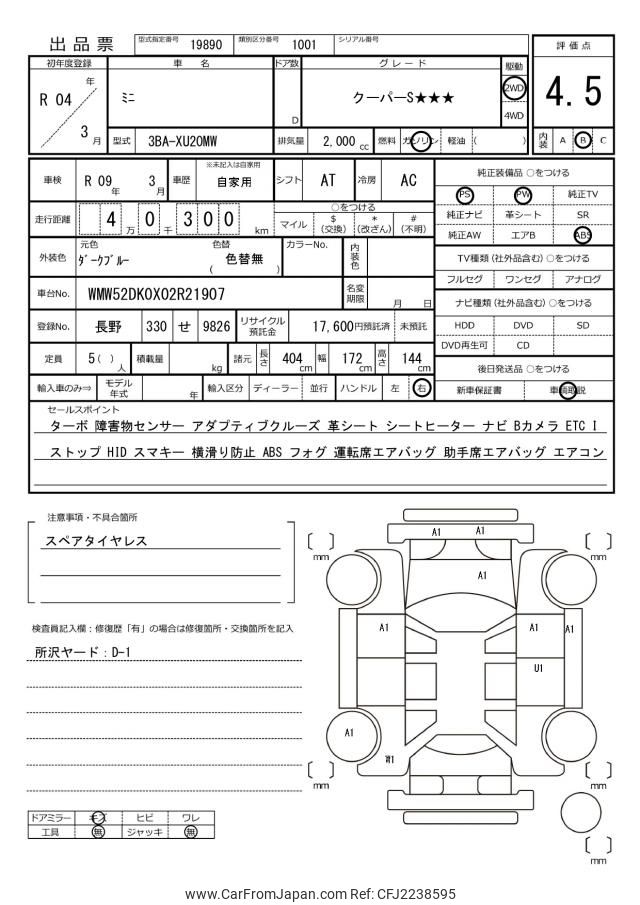 出品票
型式指定番号 19890 類別区分番号 1001 シリアル番号
評価点
4.5
初年度登録 車名 ドア数 グレード 駆動
R 04 年 3 月
ミニ
D
クーパーS★★★
2WD
4WD
型式 3BA-XU20MW 排気量 2,000 cc 燃料 ガソリン 軽油 ( )
内装 A B C
車検 R 09 年 3 月 車歴 ※未記入は自家用 自家用 シフト AT 冷房 AC
純正装備品 ○をつける
PS PW 純正TV
純正ナビ 革シート SR
純正AW エアB ABS
走行距離 4 万 0 千 3 0 0 km
○をつける
マイル $ (交換) * (改ざん) # (不明)
外装色 元色 ﾀﾞｰｸﾌﾞﾙｰ 色替 ( 色替無 ) カラーNo. 内装色
TV種類 (社外品含む) ○をつける
フルセグ ワンセグ アナログ
車台No. WMW52DK0X02R21907 名変期限 月 日
ナビ種類 (社外品含む) ○をつける
HDD DVD SD
DVD再生可 CD
登録No. 長野 330 せ 9826 リサイクル預託金 17,600円預託済 未預託
定員 5( ) 人 積載量 kg 諸元 長さ 404 cm 幅 172 cm 高さ 144 cm
後日発送品 ○をつける
新車保証書 車輌取説
輸入車のみ⇒ モデル年式 年 輸入区分 ディーラー 並行 ハンドル 左 右
セールスポイント
ターボ 障害物センサー アダプティブクルーズ 革シート シートヒーター ナビ Bカメラ ETC I
ストップ HID スマキー 横滑り防止 ABS フォグ 運転席エアバッグ 助手席エアバッグ エアコン
注意事項・不具合箇所
スペアタイヤレス
検査員記入欄：修復歴「有」の場合は修復箇所・交換箇所を記入
所沢ヤード：D-1
ドアミラー キズ ヒビ ワレ
工具 無 ジャッキ 無
A1 A1
mm mm
A1
A1 A1 A1
U1
A1
W1
mm mm
mm
www.CarFromJapan.com Ref: CFJ2238595